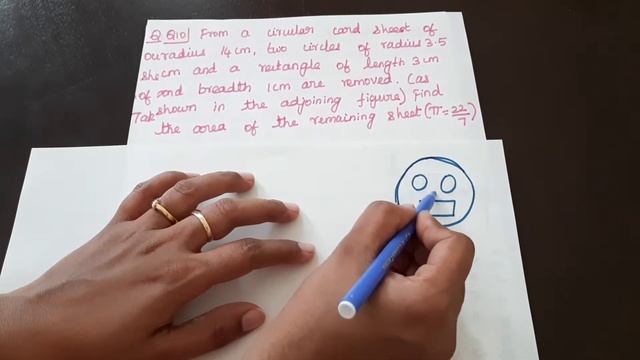 Q Q10] From a circuler card sheet of
ou radius 14 cm, two circles of radius 3.5
she cm and a rectangle of length 3 cm
of and breadth 1cm are removed. (as
Tak shown in the adjoining figure) Find
the area of the remaining sheet (π = 22/7)